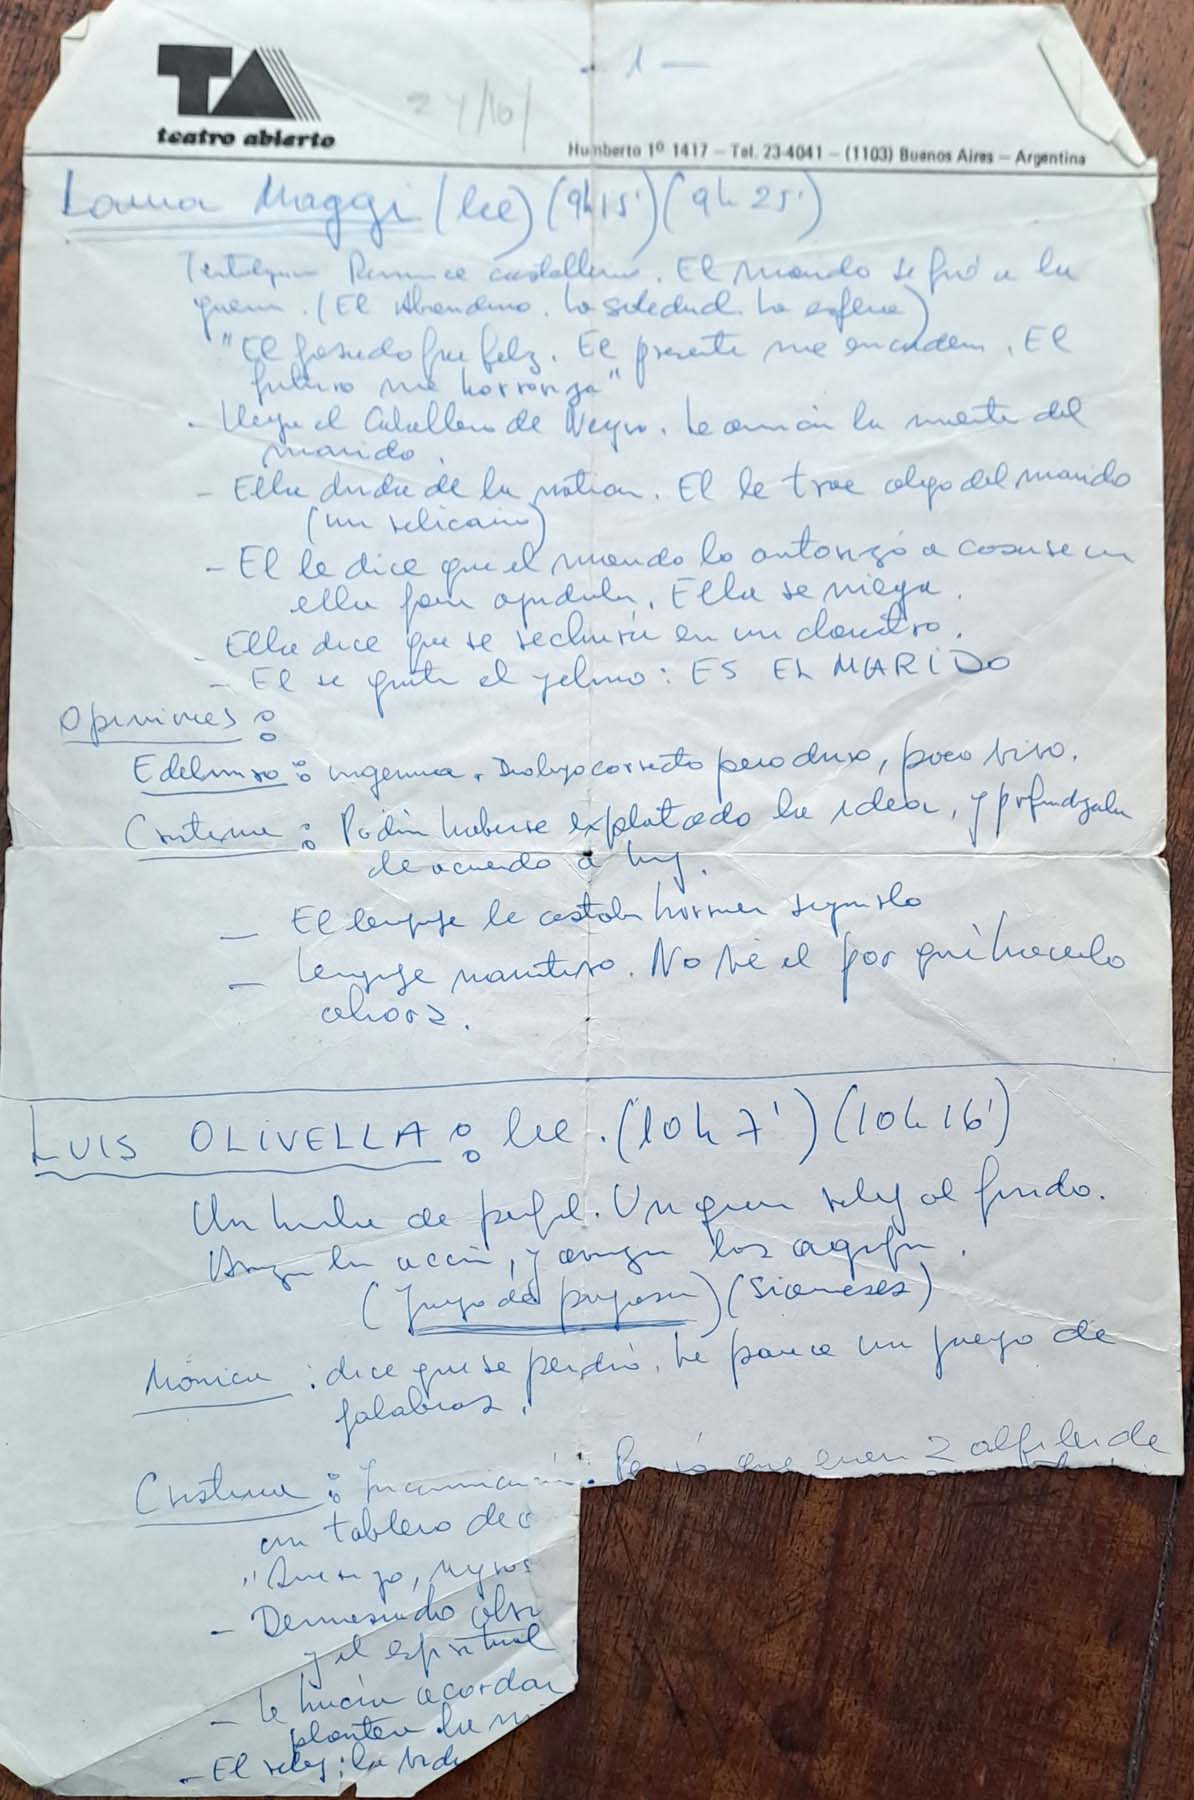 — 1 —
TA
teatro abierto
24/10/
Humberto 1º 1417 — Tel. 23-4041 — (1103) Buenos Aires — Argentina
Laura Maggi (lee) (9h 15') (9h 25')
Romance castellano. El marido se fué a la
guerra. (El abandono. La soledad. La espera)
"El pasado fue feliz. El presente me encadena. El
futuro me horroriza"
- Llega el Caballero de Negro. Le anuncia la muerte del
marido.
- Ella duda de la noticia. El le trae algo del marido
(un relicario)
- El le dice que el marido lo autorizó a casarse con
ella para ayudarla. Ella se niega.
- Ella dice que se recluirá en un claustro.
- El se quita el yelmo: ES EL MARIDO
Opiniones:
Edelmiro: ingenua. Trabajo correcto pero duro, poco vivo.
Cristina: Podría haberse explotado la idea, y profundizarla
de acuerdo a hoy.
- El lenguaje le costaba horrores seguirlo
- Lenguaje narrativo. No vé el por qué hacerlo
ahora.
LUIS OLIVELLA: lee. (10h 7') (10h 16')
Un hombre de perfil. Un gran reloj al fondo.
la acción, y
(Juego de) (Siameses)
Mónica: dice que se perdió. Le parece un juego de
palabras.
Cristina: Incomunicación. Pensó que eran 2 alfiles de
un tablero de
"
- Demasiado
y el espiritual
- Le hacía acordar
plantea la
- El reloj: la vida